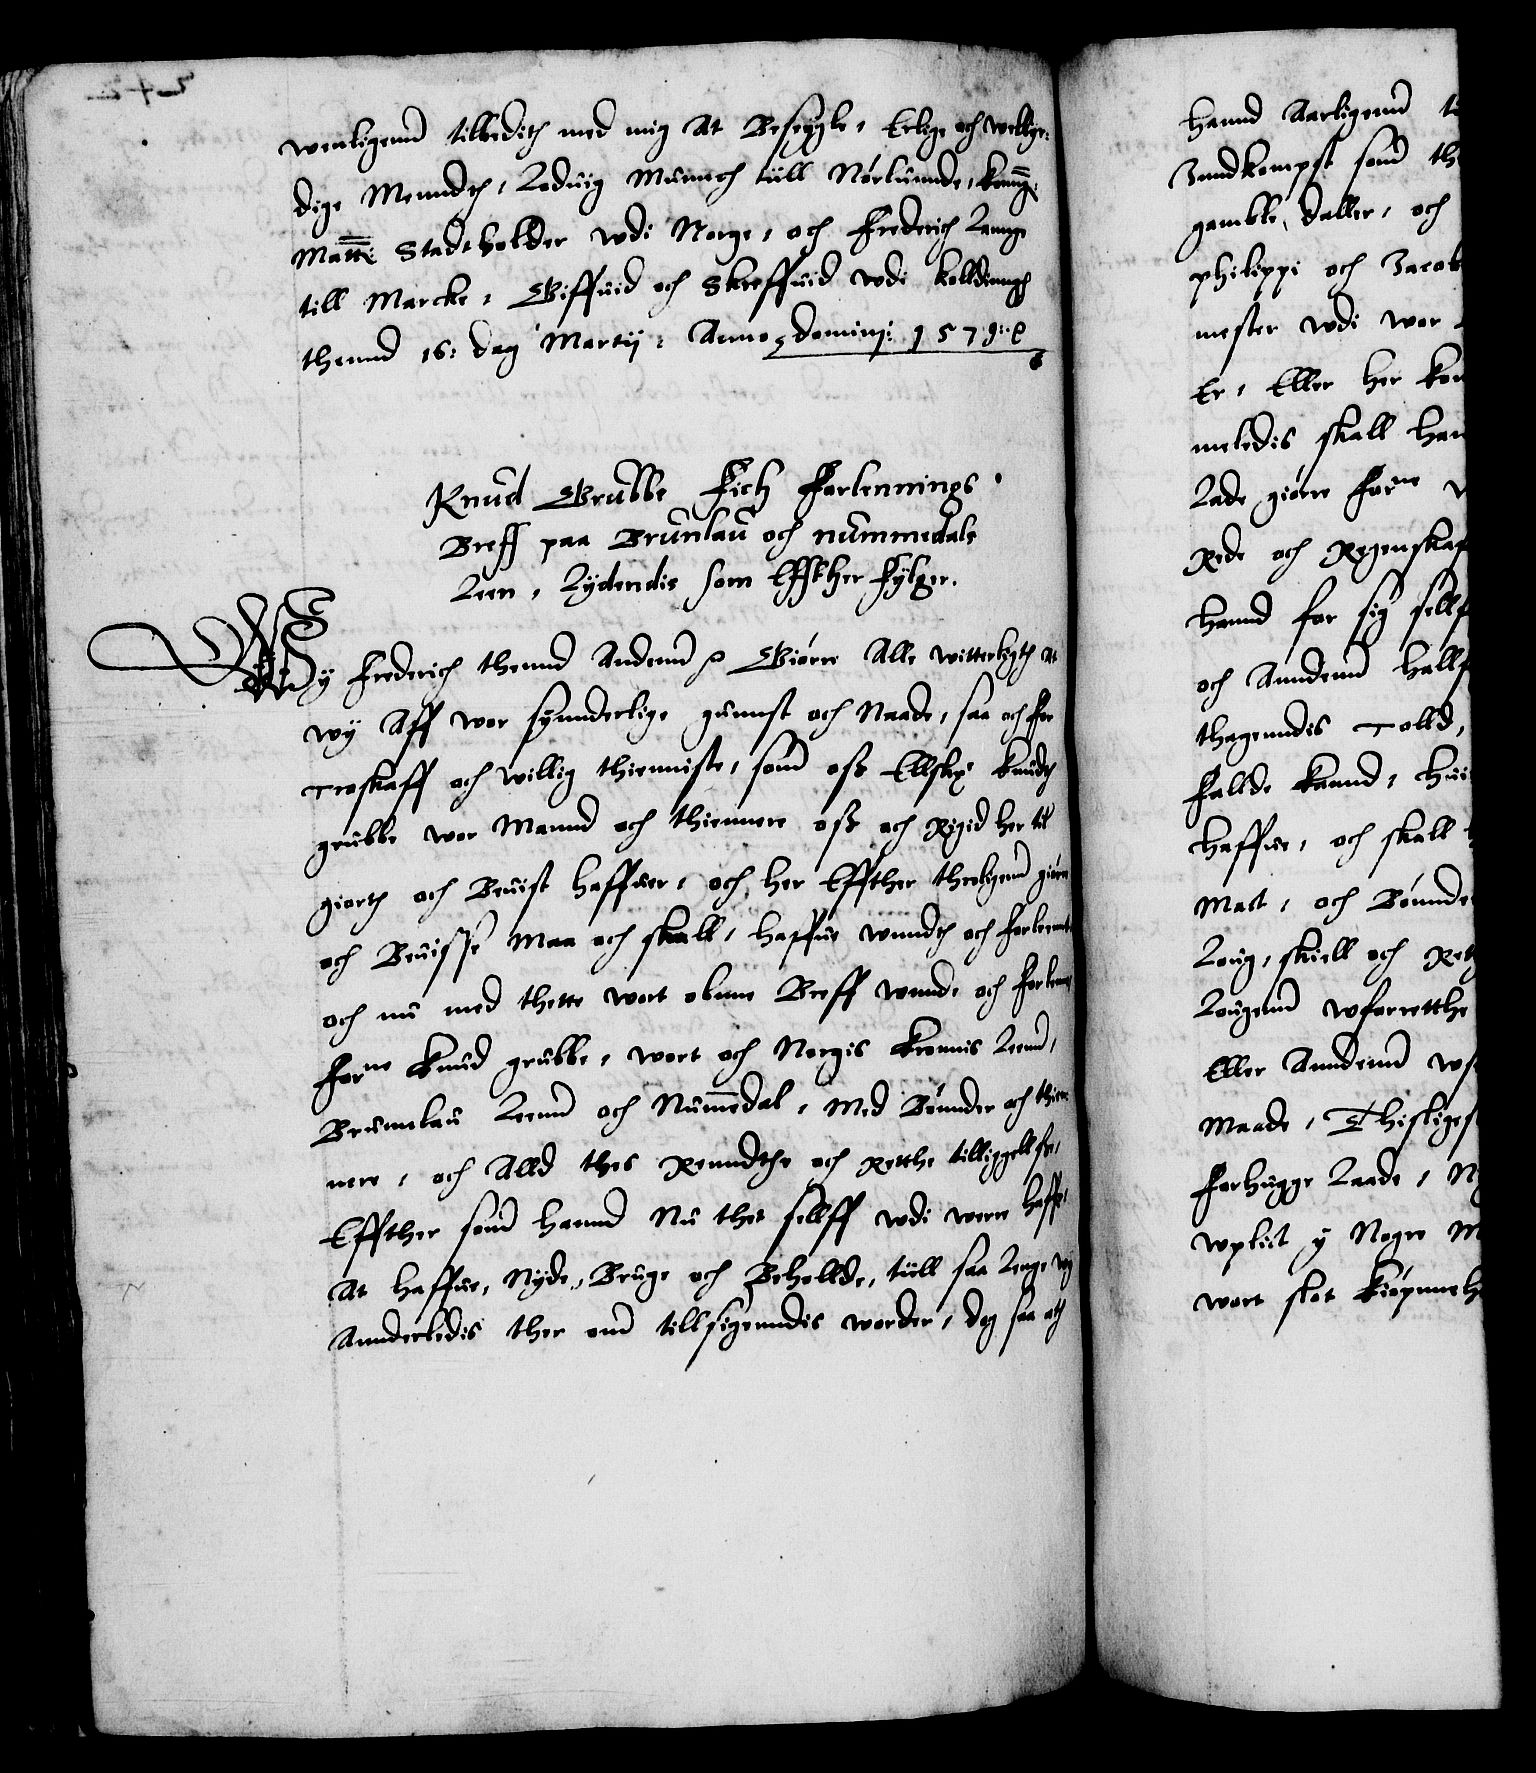 wenligenn tilbedith med mig At Beseygle, Erlige och welbyr:
dige Menndh, Loduig Munnch till Nørlunde, konng:
Matt: Stadtholder wdi Norge, och Frederich Lannge
till Marcke, Giffuid och Skreffuid wdi kolldinngh
thennd 16: dag Martij: Anno domini: 1579
Knud Grubbe Fich Forlennings
Breff paa Brunlau och nummedals
Leen, Lydendis som Effther Følger.
Wy Frederich thennd Andenn Giøre Alle witterligth at
wy Aff wor synnderlige gunnst och Naade, saa och for
troskaff och willig thienniste, som oss Ellskr Knudh
grubbe wor Mannd och thiennere oss och Rigid her til
giorth och Beuist haffuer, och her Effther throligenn giøre
och Beuisse Maa och skall, haffue wundh och forleent
och nu med thette wort obnne Breff wnnde och forlene
forne Knud grubbe, wort och Norgis Kronnis Leenn,
Brunnlau Leenn och Nummedal, Med Bønnder och thien-
nere, och Alld thes Renndthe och Retthe tilliggellse,
Effther som hannd Nu thet sellff wdi werre haffr,
At haffue, Nyde, Bruge och Behollde, till saa Lenge wy
Annderledis ther om tillsigenndis worder, dog saa ath
hannd Aarligenn
Inndkompst som
gamble daller, och
philippi och Jacob
mester wdi wor
Er, Eller her
meledis skall
Lade giøre forne
Rede och Regenskap
hannd for sig sellf
och Anndenn
thagenndis Tolld,
Fallde kannd,
haffue, och skall
Mact, och Bønnde
Loug, skiell och Reth
Lougenn wforretthe
Eller Anndenn
Maade, Thisligest
forhugge Laade,
wplict y Nogre
wort slot